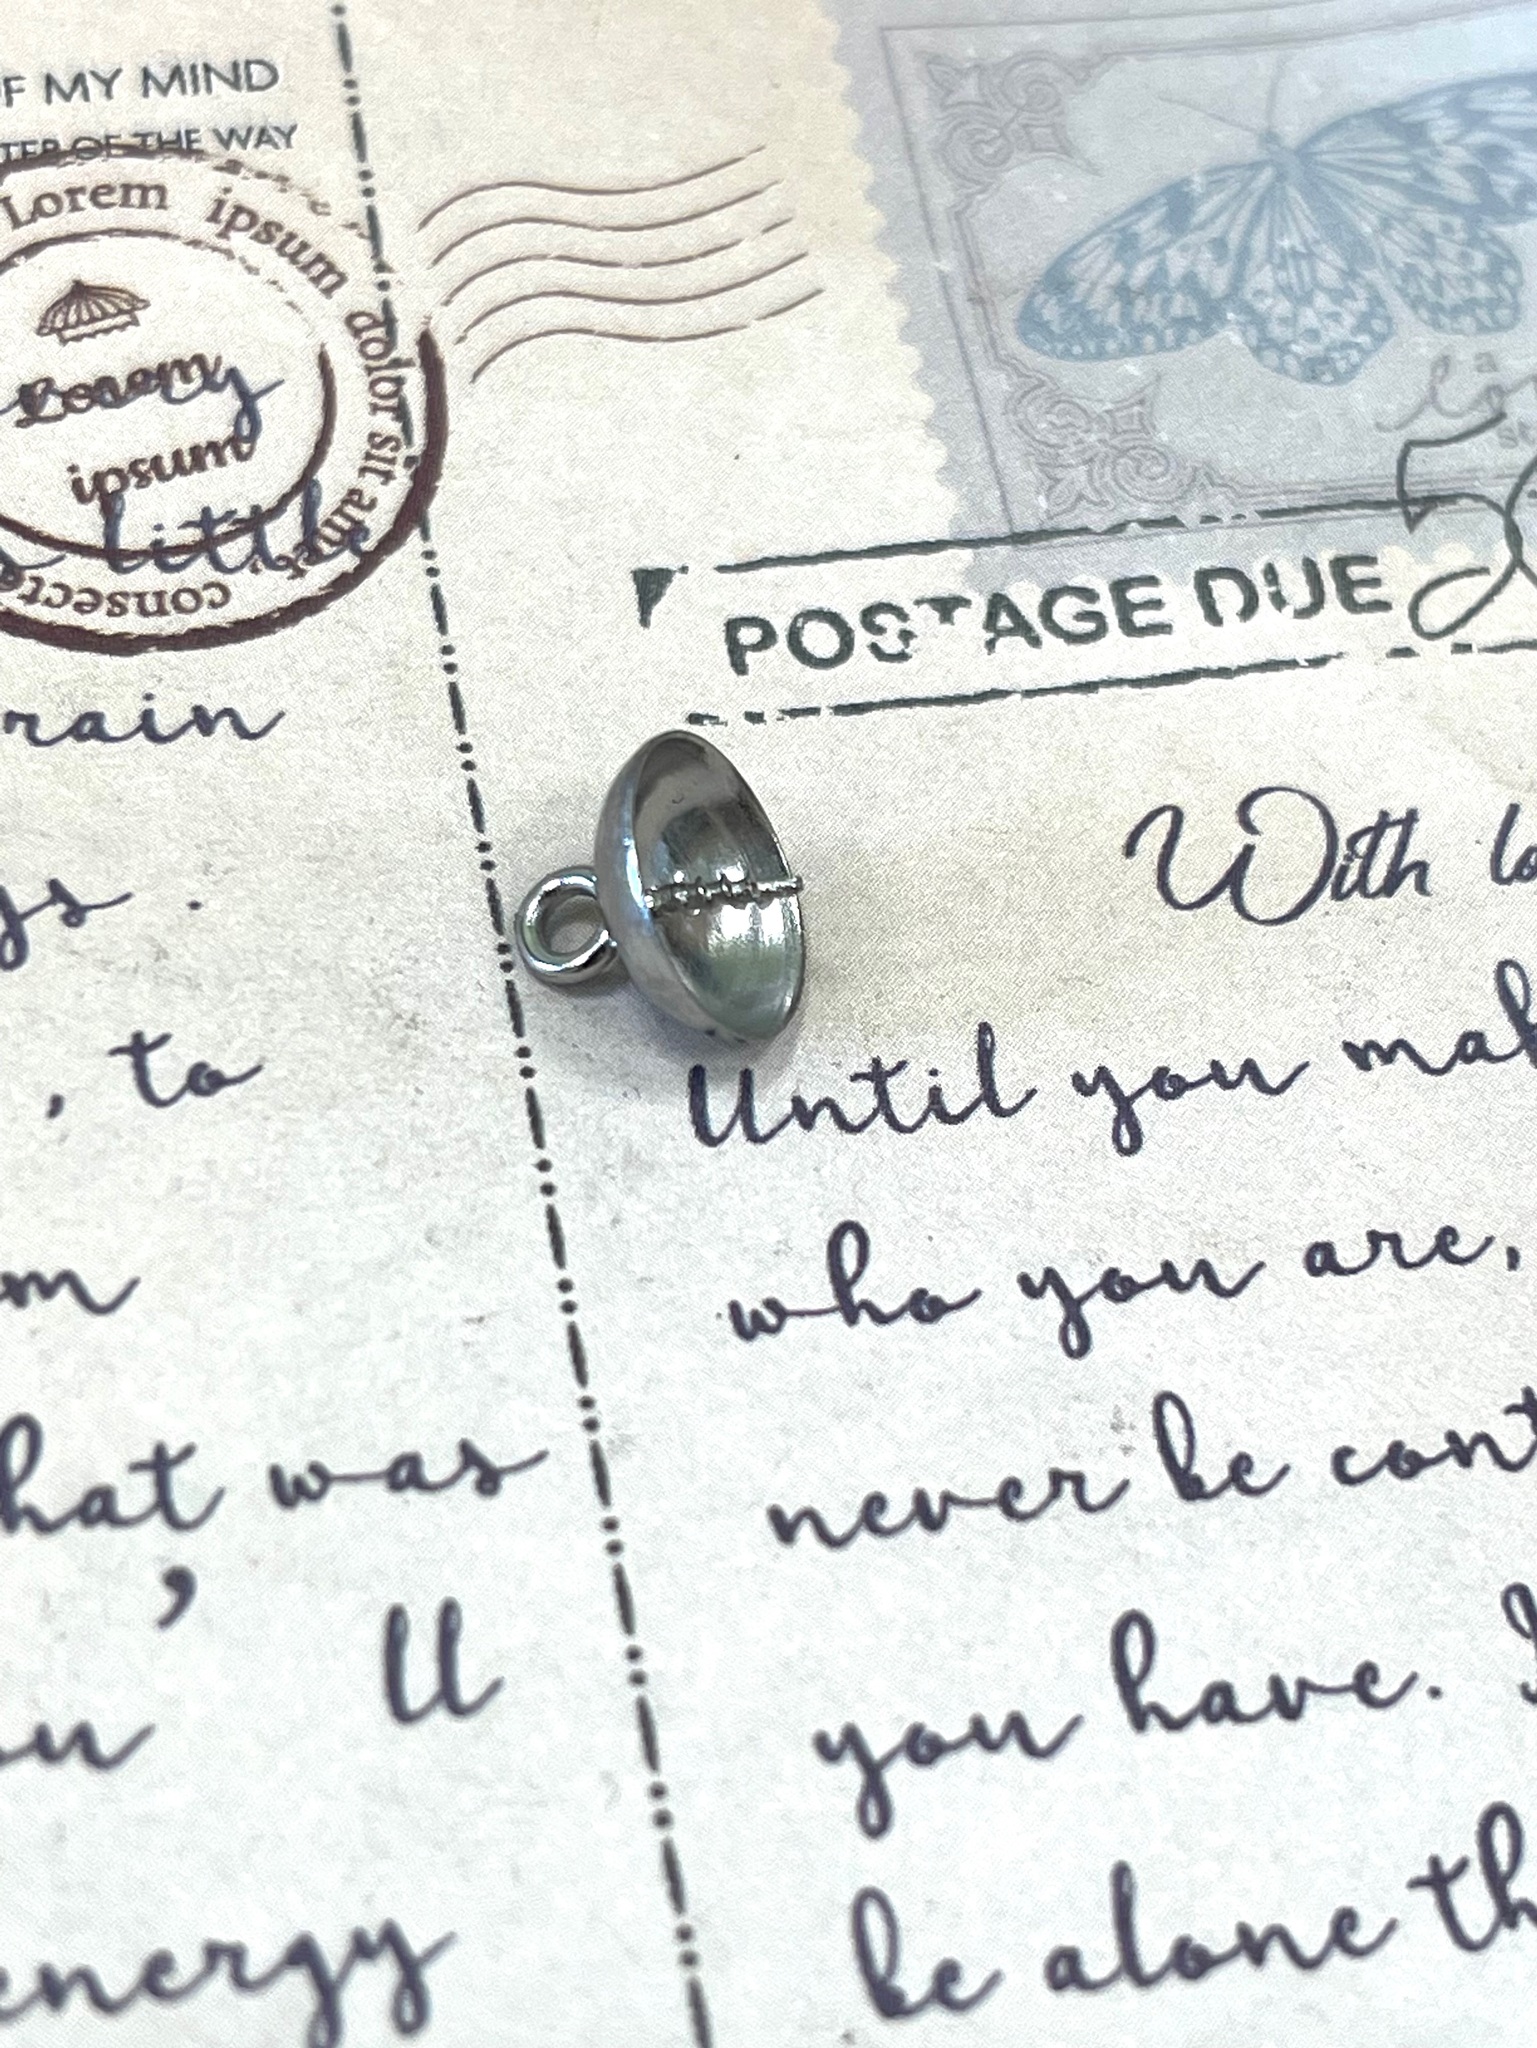 F MY MIND
TER OF THE WAY
Lorem ipsum dolor sit amet, consecte
Lorem
ipsum
little
rain
gs.
, to
m
hat was
' ll
ou
energy
POSTAGE DUE
With lo
Until you mak
who you are,
never be cont
you have. I
be alone th